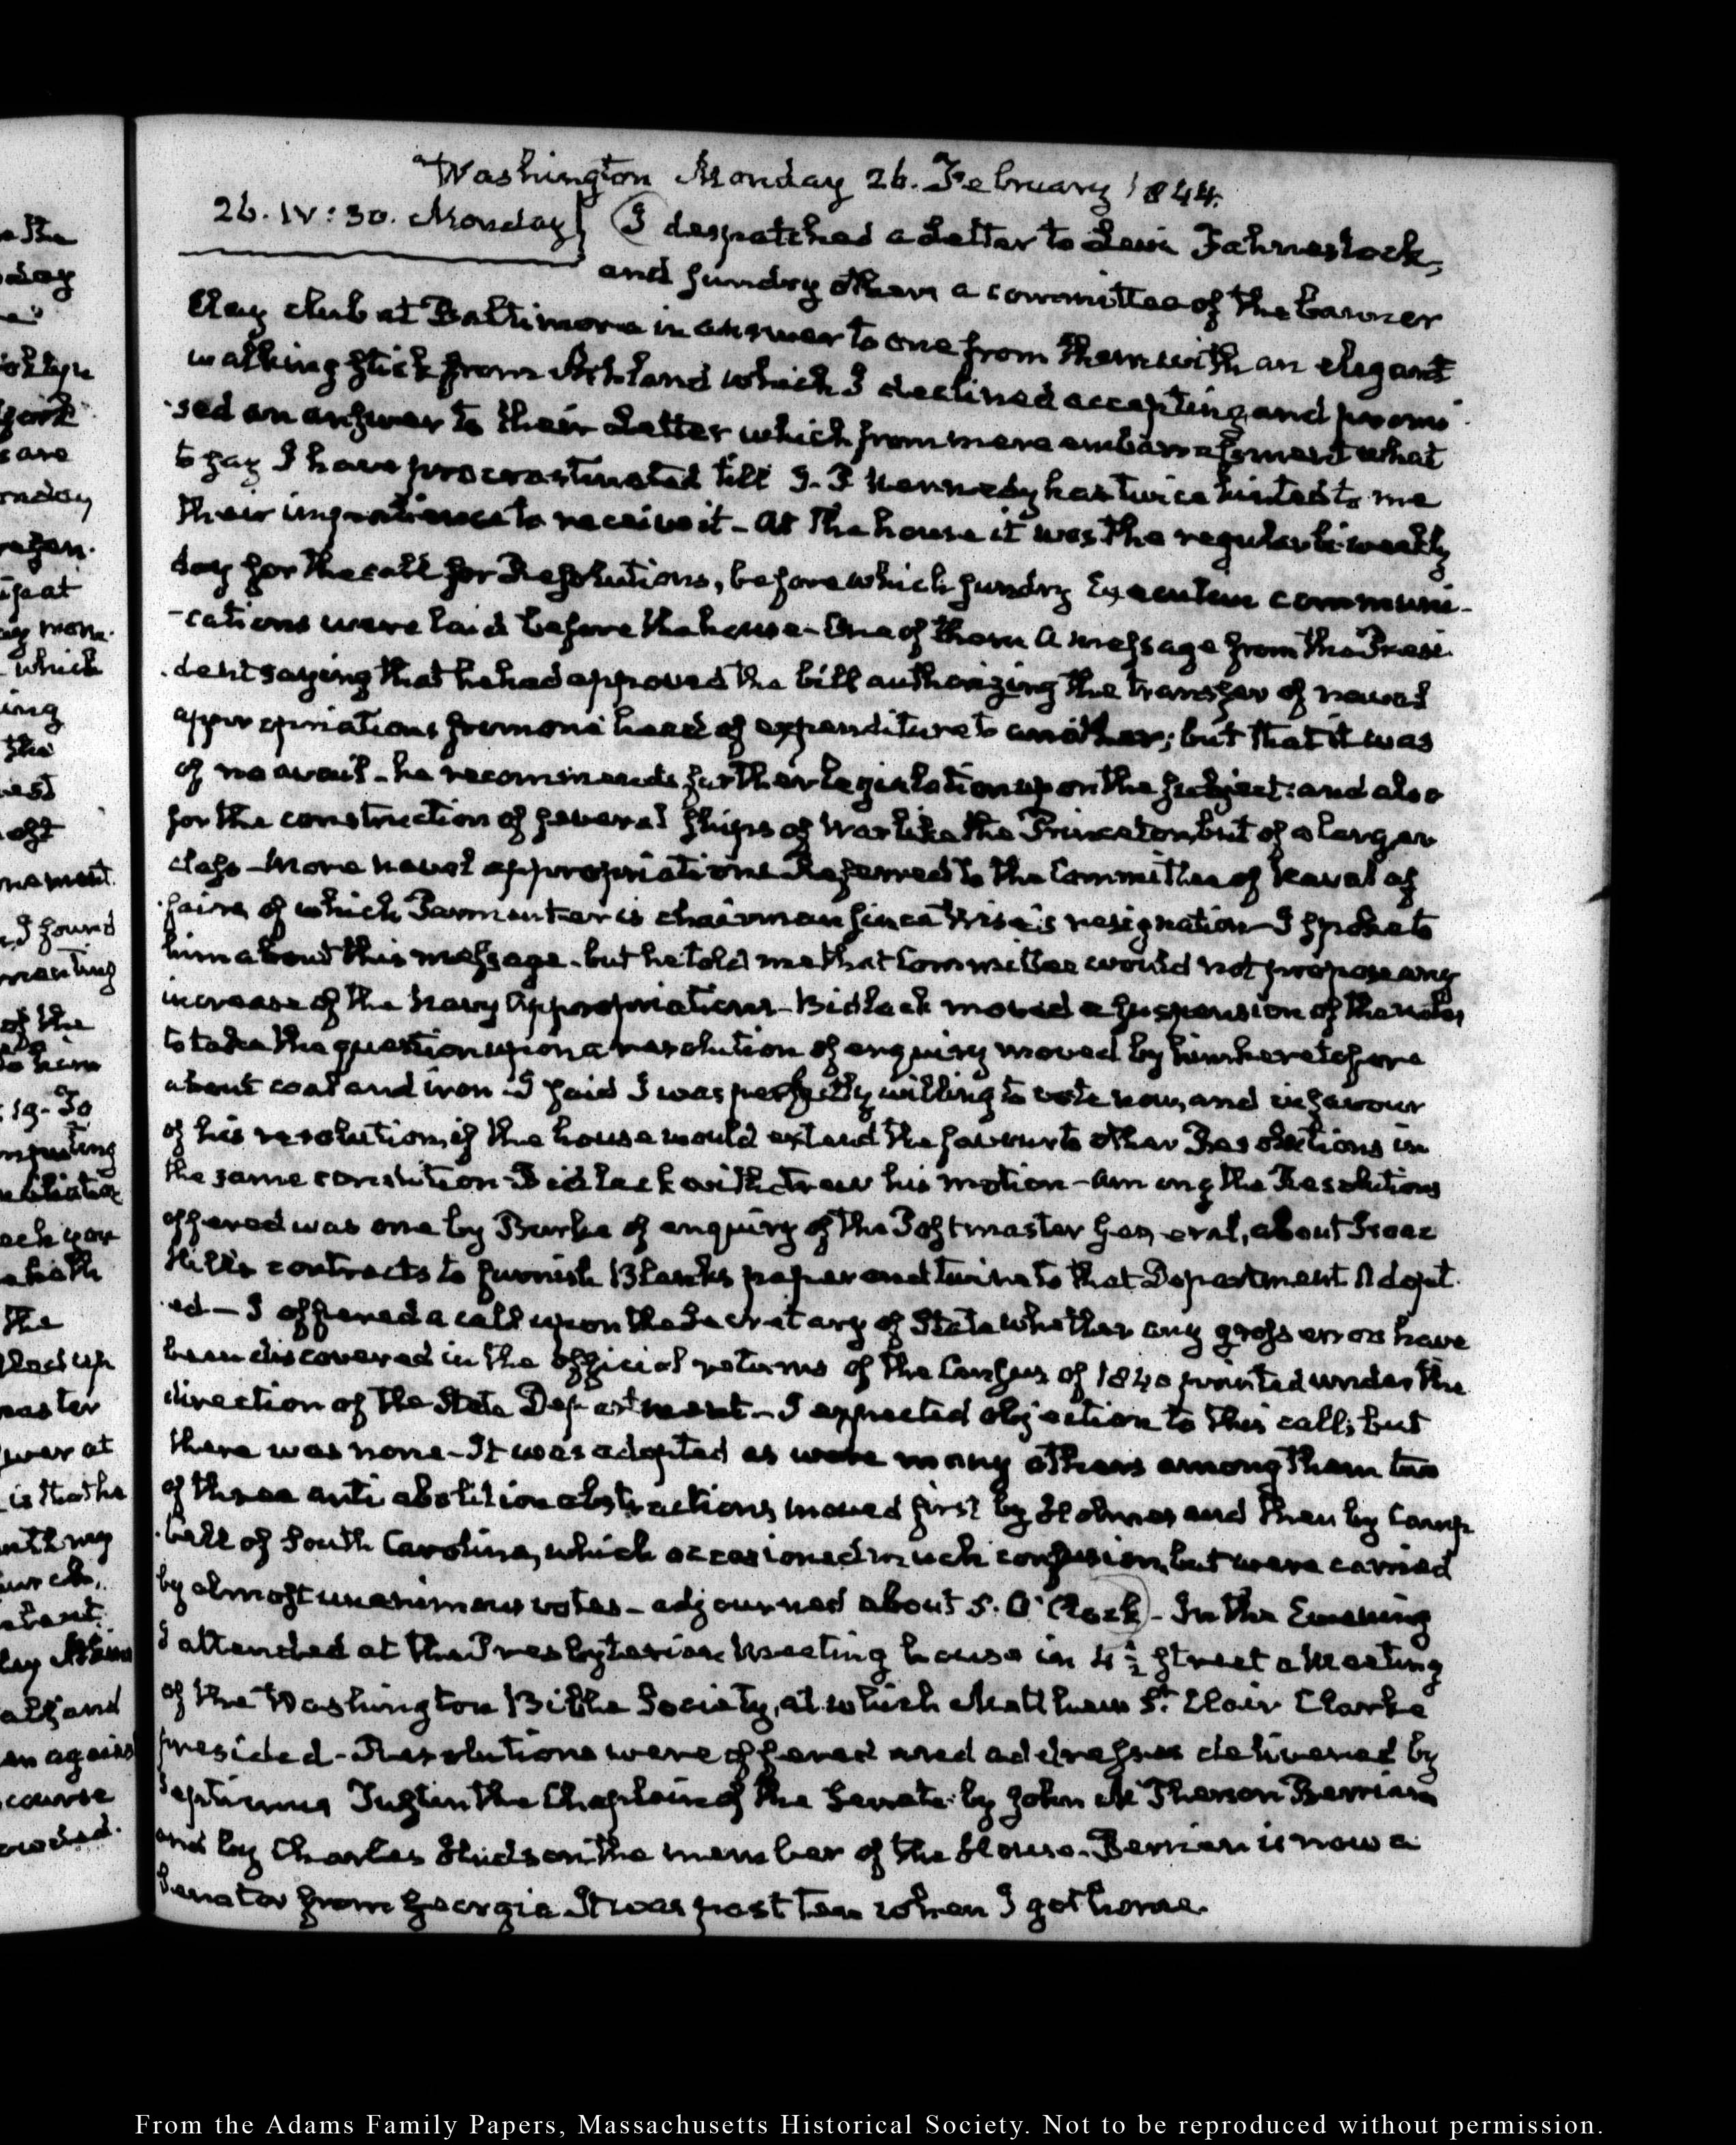 Washington Monday 26. February 1844.
26. IV:30. Monday I despatched a Letter to Levi Fahnestock,
and sundry others a committee of the Banner
Clay club at Baltimore in answer to one from them with an elegant
walking stick from Ashland which I declined accepting and promi-
sed an answer to their Letter which from mere embarrassment what
to say I have procrastinated till J. P. Kennedy has twice hinted to me
their impatience to receive it - At the house it was the regular bi-weekly
day for the call for Resolutions, before which sundry Executive communi-
-cations were laid before the house - One of them a Message from the Presi-
dent saying that he had approved the bill authorizing the transfer of naval
appropriations from one head of expenditure to another; but that it was
of no avail - he recommends further legislation upon the subject: and also
for the construction of several ships of War like the Princeton, but of a larger
class - More naval appropriations Referred to the Committee of Naval af
fairs, of which Parmenter is chairman since Wise's resignation - I spoke to
him about this message - but he told me that Committee would not propose any
increase of the Navy Appropriations - Bidlack moved a suspension of the rules
to take the question upon a resolution of enquiry moved by him heretofore
about coal and iron - I said I was perfectly willing to vote now, and in favour
of his resolution, if the house would extend the favour to other Resolutions in
the same condition - Bidlack withdrew his motion - Among the Resolutions
offered was one by Burke of enquiry of the Postmaster General, about Isaac
Hill's contracts to furnish Blanks paper and twine to that Department Adopt-
ed - I offered a call upon the Secretary of State whether any gross errors have
been discovered in the official returns of the Census of 1840 printed under the
direction of the State Department - I expected objection to this call; but
there was none - It was adopted as were many others among them two
of three anti abolition abstractions moved first by Holmes and then by Camp
bell of South Carolina, which occasioned much confusion, but were carried
by almost unanimous votes - adjourned about 5. O'Clock - In the Evening
I attended at the Presbyterian Meeting house in 4 1/2 street a Meeting
of the Washington Bible Society, at which Matthew St. Clair Clarke
presided - Resolutions were offered and addresses delivered by
Septimus Tustin the Chaplain of the Senate - by John McPherson Berrian
and by Charles Hudson the member of the House. Berrian is now a
Senator from Georgia It was past ten when I got home.
From the Adams Family Papers, Massachusetts Historical Society. Not to be reproduced without permission.